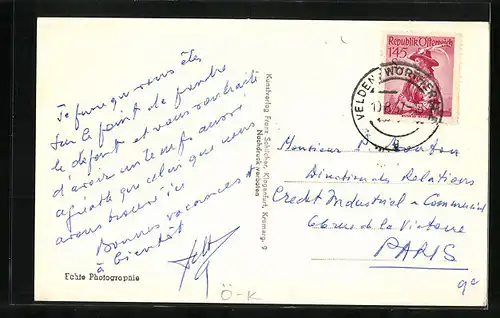 Je pense que vous êtes
sur le point de prendre
le départ et vous souhaite
d'avoir un temps aussi
agréable que celui que nous
avons trouvé ici
Bonnes vacances &
à bientôt
Echte Photographie
Kunstverlag Franz Schilcher, Klagenfurt, Kramerg. 9
Nachdruck verboten
Republik Österreich
1'45
VELDEN
Monsieur P.
Direction des Relations
Credit Industriel & Commercial
66 rue de la Victoire
PARIS
9e
Ö-K